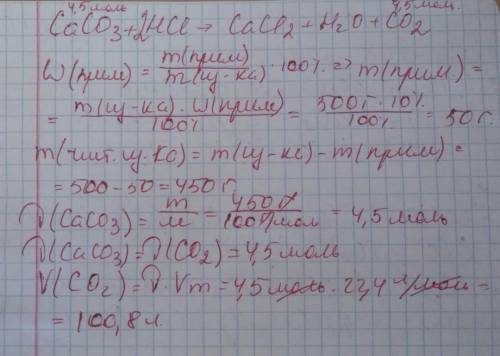 4,5моль 4,5моль
CaCO3+2HCl → CaCl2+H2O+CO2
ω(прим) = m(прим)/m(изв-ка) · 100% => m(прим) =
= m(изв-ка) · ω(прим)/100% = 500г · 10%/100% = 50г.
m(чист. изв-кс) = m(изв-кс) - m(прим) =
= 500 - 50 = 450г
ν(CaCO3) = m/M = 450г/100г/моль = 4,5моль
ν(CaCO3) = ν(CO2) = 4,5моль
V(CO2) = ν · Vm = 4,5моль · 22,4 л/моль =
= 100,8л.